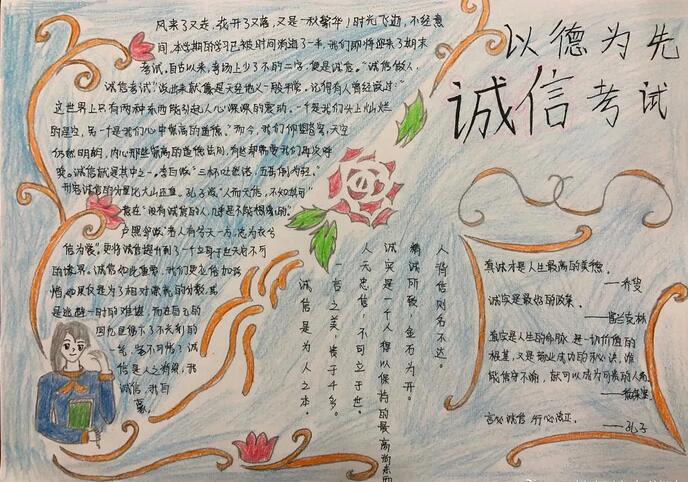 以德为先
诚信考试
风来了又走，花开了又落，又是一秋繁华！时光飞逝，不经意
间，本学期的学习已被时间消逝了一半，我们即将迎来了期末
考试。自古以来，考场上少了不的二字，便是诚信。"诚信做人，
诚信考试"说出来就像是天经地义一般平常。记得有人曾经说过："
这世界上只有两种东西能引起人心深深的震动，一个是我们头上灿烂
的星空，另一个是我们心中崇高的道德。"而今，我们仰望苍穹，天空
仍然明朗，内心那些崇高的道德法则，有些却需要我们再次呼
唤。诚信就是其中之一。李白做"三杯吐然诺，五岳倒为轻。"
形容诚信的分量比大山还重。孔子说"人而无信，不知其可"
意在"没有诚信的人，几乎是不能想象的。"
信为裳。更将诚信提升到了一个
的境界。诚信如此重要，我们更应信加珍
惜，如果仅是为了相对漂亮的分数，其
是逃避一时的难堪，而在自己的
信是人之根梁，我
诚信，我自
豪。
人背信则名不达。
精诚所致，金石为开。
诚实是一个人得以保持的最高尚的东西
人无忠信，不可立于世。
一言之美，贵于千乡。
诚信是为人之本。
真诚才是人生最高的美德。
——乔叟
诚实是最好的政策。
——富兰克林
诚实是人生的命脉，是一切价值的
根基，又是商业成功的秘诀，谁
能信守不渝，就可以成为可贵的人局
言必诚信 行必忠正。
——孔子